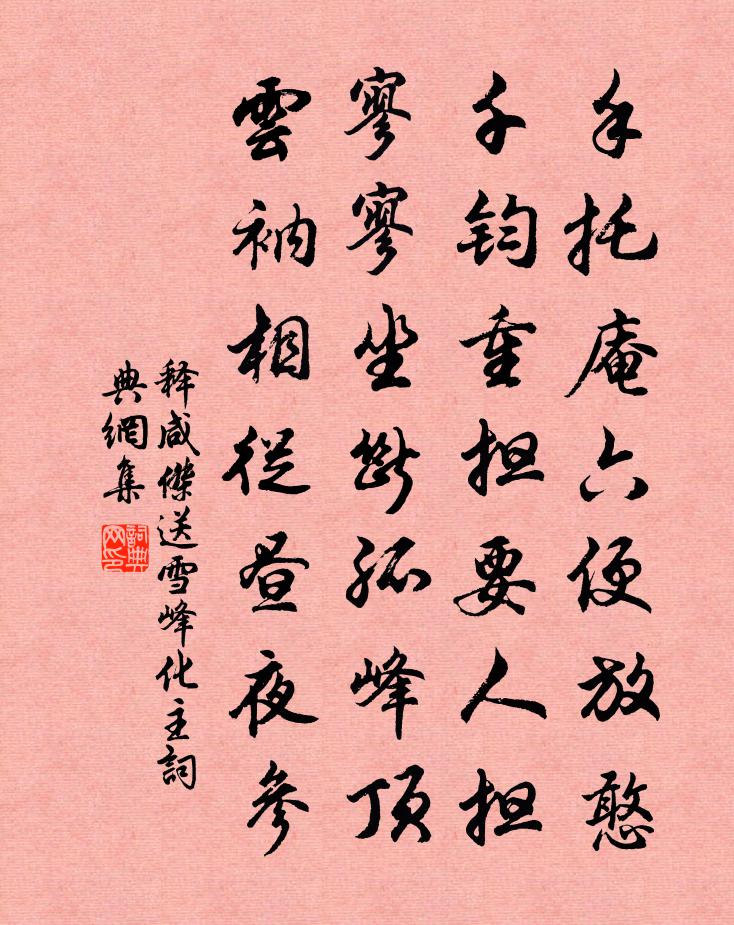 手托庵六便放憨
千钧重担要人担
寥寥坐斷孤峰顶
雲衲相從昼夜參
释咸傑送雪峰化主詞
典網集
詞典
网印